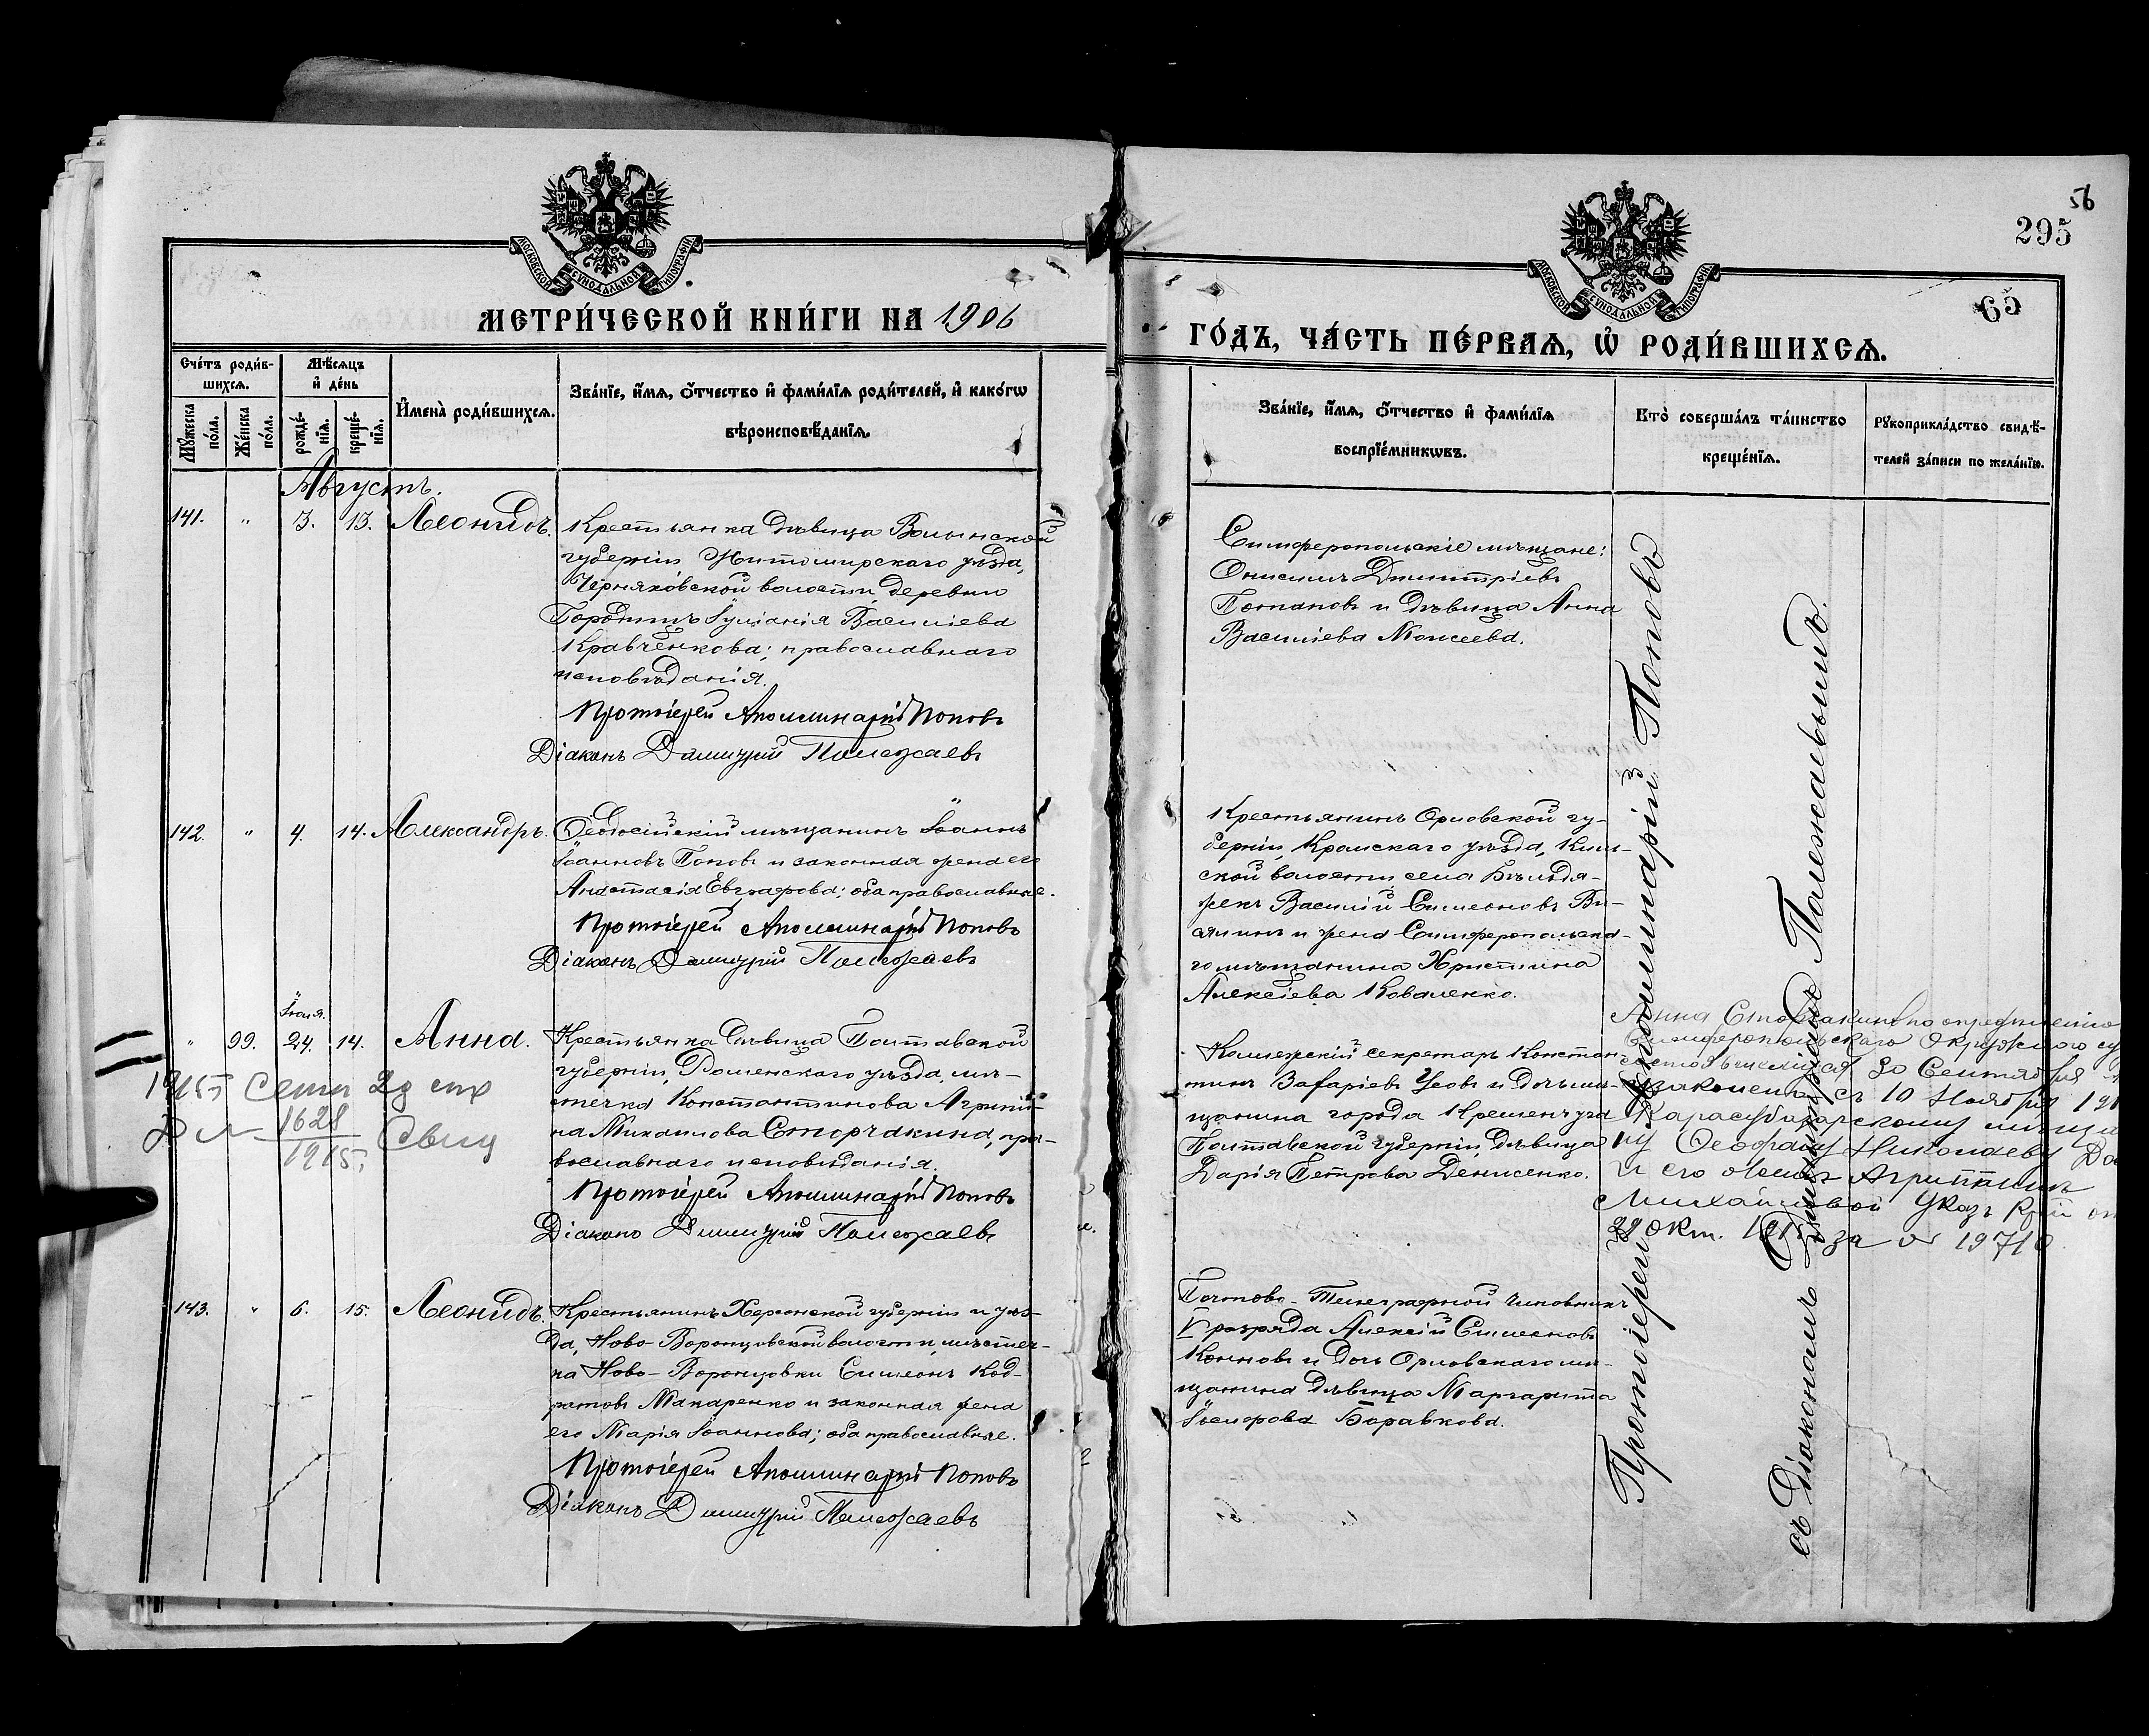 56
295
65
МОСКОВСКОЙ СѴНОДАЛЬНОЙ ТИПОГРАФІИ
МОСКОВСКОЙ СѴНОДАЛЬНОЙ ТИПОГРАФІИ
МЕТРИ́ЧЕСКОЙ КНИ́ГИ НА 1906
ГО́ДЪ, ЧА́СТЬ ПЕ́РВАѦ, Ѡ҆ РОДИ́ВШИХСѦ.
Сче́тъ роди́в-
шихсѧ.
Мѣ́сѧцъ
и҆ де́нь
Мꙋ́жеска
по́ла.
Же́нска
по́ла.
рожде́-
нїѧ.
креще́-
нїѧ.
И҆мена̀ роди́вшихсѧ.
Зва́нїе, и҆́мѧ, ѻ҆́тчество и҆ фами́лїѧ роди́телей, и҆ како́гѡ
вѣроисповѣ́данїѧ.
Зва́нїе, и҆́мѧ, ѻ҆́тчество и҆ фами́лїѧ
воспрїе́мникѡвъ.
Кто̀ соверша́лъ та́инство
креще́нїѧ.
Рꙋкоприкла́дство свидѣ́-
телей за́писи по жела́нїю.
Августъ.
141. " 3. 13. Леонидъ.
Крестьянка дѣвица Волынской
губерніи Житомирскаго уѣзда,
Черняховской волости, деревни
Іуліанія Василіева
Кравченкова; православнаго
исповѣданія.
Протоіерей Аполлинарій Поповъ
Діаконъ Димитрій Полежаевъ
Симферопольскіе мѣщане:
Онисимъ Димитріевъ
Потаповъ и дѣвица Анна
Василіева Моисеева.
142. " 4. 14. Александръ.
Ѳеодосійскій мѣщанинъ Іоаннъ
Іоанновъ Поповъ и законная жена его
Анастасія Евграфова; оба православные.
Протоіерей Аполлинарій Поповъ
Діаконъ Димитрій Полежаевъ
Крестьянинъ Орловской гу-
берніи, Кромскаго уѣзда,
ской волости села
Василій Симеоновъ
и жена Симферопольска-
го мѣщанина Христина
Алексіева Коваленко.
Іюля.
" 99. 24. 14. Анна.
Крестьянка дѣвица Полтавской
губерніи, Роменскаго уѣзда, мѣ-
стечка Константинова Агрипи-
на Михаилова Сторчакина, пра-
вославнаго исповѣданія.
Протоіерей Аполлинарій Поповъ
Діаконъ Димитрій Полежаевъ
1915 Сент 29
1628
1915
Коллежскій секретарь Констан-
тинъ Захаріевъ Усовъ и дочь мѣ-
щанина города Кременчуга
Полтавской губерніи, дѣвица
Дарія Петрова Денисенко.
Анна Сторчакина по опредѣленію
Симферопольскаго Окружного су
состоявшемуся 30 Сентября
узаконена съ 10 Ноября 191
Карасубазарскому мѣща
ну Ѳеофану Николаеву
и его женѣ Агриппинѣ
Михайловой Указъ
28 Окт. 1915 за № 19710
143. " 6. 15. Леонидъ.
Крестьянинъ Херсонской губерніи и уѣз-
да, Ново-Воронцовской волости, мѣстеч-
ка Ново-Воронцовки Симеонъ Код-
ратовъ Макаренко и законная жена
его Марія Іоаннова; оба православные.
Протоіерей Аполлинарій Поповъ
Діаконъ Димитрій Полежаевъ
Почтово-Телеграфной чиновникъ
V разряда Алексій Симеоновъ
Конновъ и дочь Орловскаго мѣ-
щанина дѣвица Маргарита
Іосифова Боравкова.
Протоіерей Аполлинарій Поповъ
съ Діакономъ Димитріемъ Полежаевымъ.